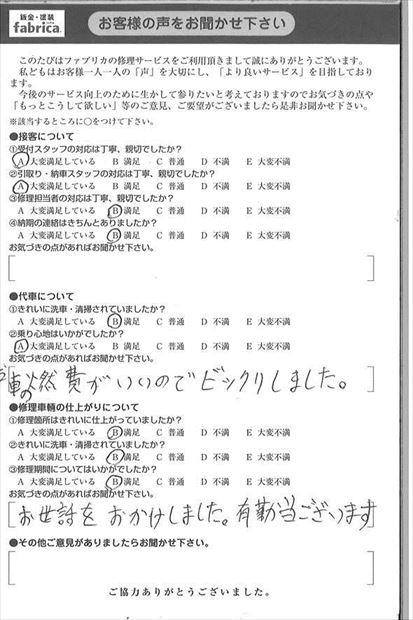 鈑金・塗装
fabrica.
お客様の声をお聞かせ下さい
このたびはファブリカの修理サービスをご利用頂きまして誠にありがとうございます。
私どもはお客様一人一人の「声」を大切にし、「より良いサービス」を目指しており
ます。
今後のサービス向上のために生かして参りたいと考えておりますのでお気づきの点や
「もっとこうして欲しい」等のご意見、ご要望がございましたら是非お聞かせ下さい。
※該当するところに○をつけて下さい。
●接客について
①受付スタッフの対応は丁寧、親切でしたか?
A 大変満足している B 満足 C 普通 D 不満 E 大変不満
②引取り・納車スタッフの対応は丁寧、親切でしたか?
A 大変満足している B 満足 C 普通 D 不満 E 大変不満
③修理担当者の対応は丁寧、親切でしたか?
A 大変満足している B 満足 C 普通 D 不満 E 大変不満
④納期の連絡はきちんとありましたか?
A 大変満足している B 満足 C 普通 D 不満 E 大変不満
お気づきの点があればお聞かせ下さい。
●代車について
①きれいに洗車・清掃されていましたか?
A 大変満足している B 満足 C 普通 D 不満 E 大変不満
②乗り心地はいかがでしたか?
A 大変満足している B 満足 C 普通 D 不満 E 大変不満
お気づきの点があればお聞かせ下さい。
車の燃費がいいのでビックリしました。
●修理車輌の仕上がりについて
①修理箇所はきれいに仕上がっていましたか?
A 大変満足している B 満足 C 普通 D 不満 E 大変不満
②きれいに洗車・清掃されていましたか?
A 大変満足している B 満足 C 普通 D 不満 E 大変不満
③修理期間についてはいかがでしたか?
A 大変満足している B 満足 C 普通 D 不満 E 大変不満
お気づきの点があればお聞かせ下さい。
お世話をおかけしました。有勤当ございます
●その他ご意見がありましたらお聞かせ下さい。
ご協力ありがとうございました。